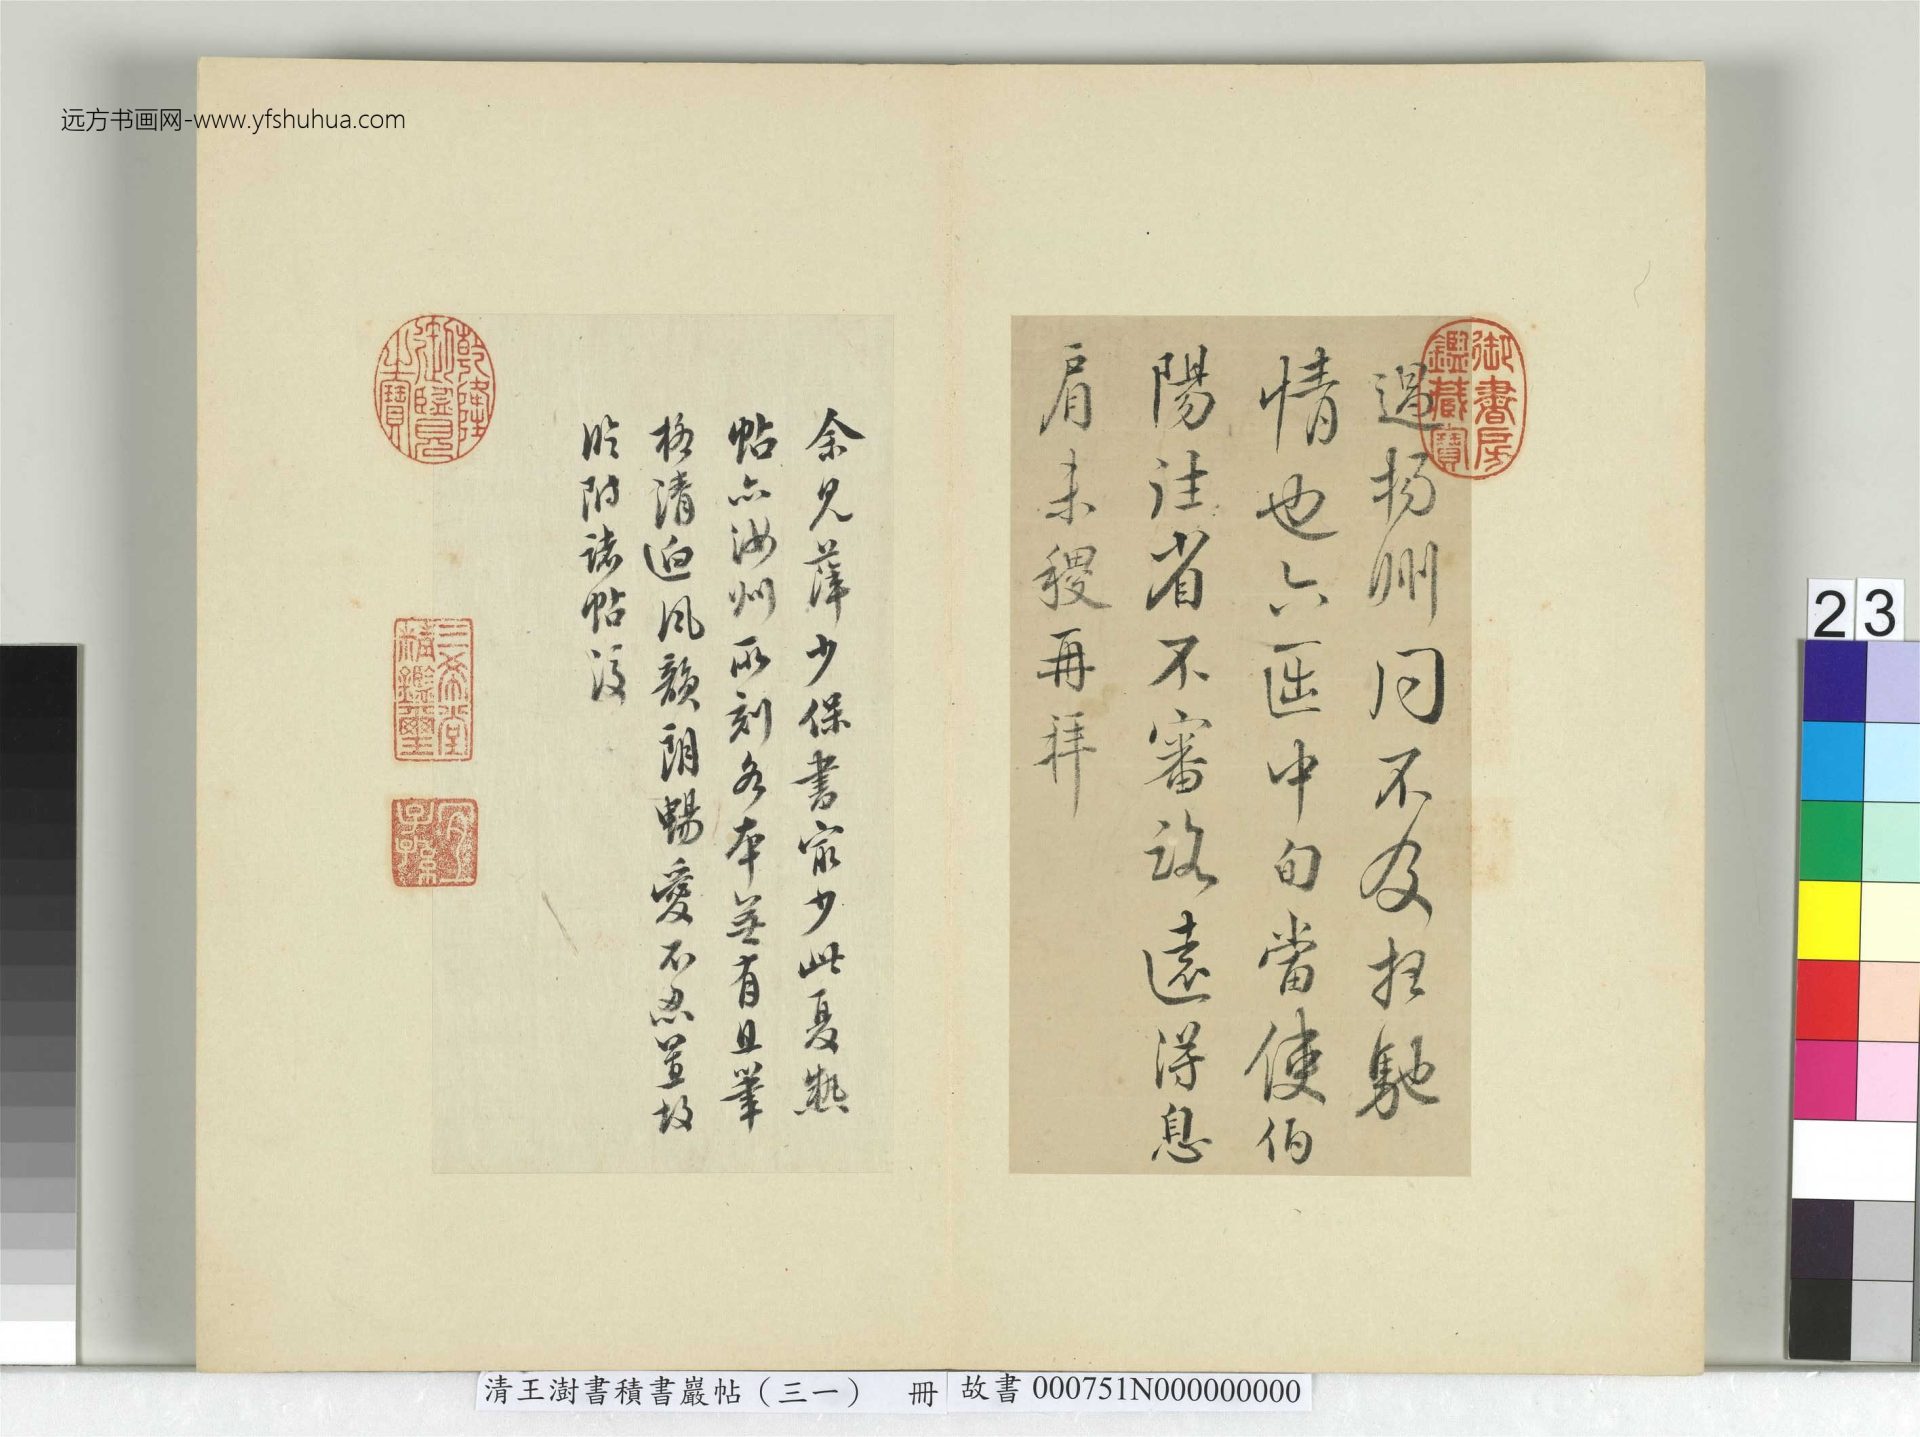 远方书画网-www.yfshuhua.com
過揚州問不及拄馳
情也六匝中句當使伯
陽往省不審詻遠得息
肩未稷再拜
余見薛少保書寂少此夏熱
帖亦汝州所刻各本並有且筆
格清迥風韻朗暢愛不忍置故
臨附諸帖後
御書房鑑藏寶
乾隆御覽之寶
三希堂精鑑璽
宜子孫
23
清王澍書積書巖帖（三一） 冊 故書 000751N000000000